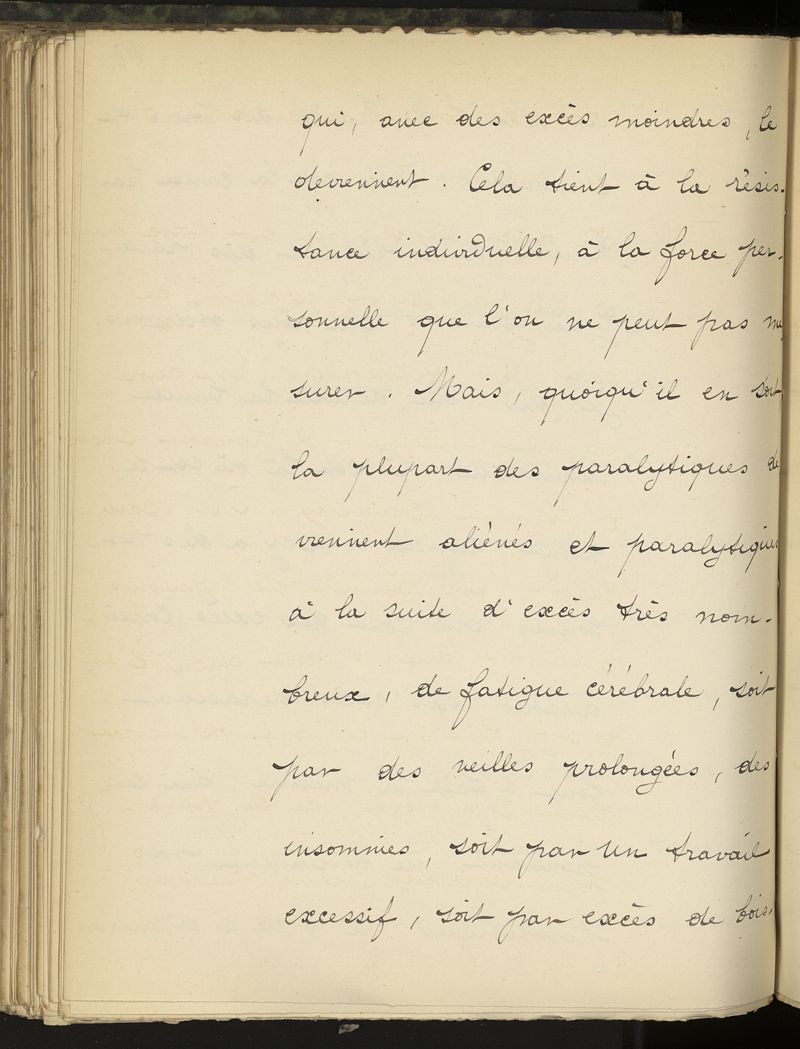 qui, avec des excès moindres, le
deviennent. Cela tient à la résis-
tance individuelle, à la force per-
sonnelle que l'on ne peut pas me
surer. Mais, quoiqu'il en soit
la plupart des paralytiques de
viennent aliénés et paralytiques
à la suite d'excès très nom-
breux, de fatigue cérébrale, soit
par des veilles prolongées, des
insomnies, soit par un travail
excessif, soit par excès de bois-